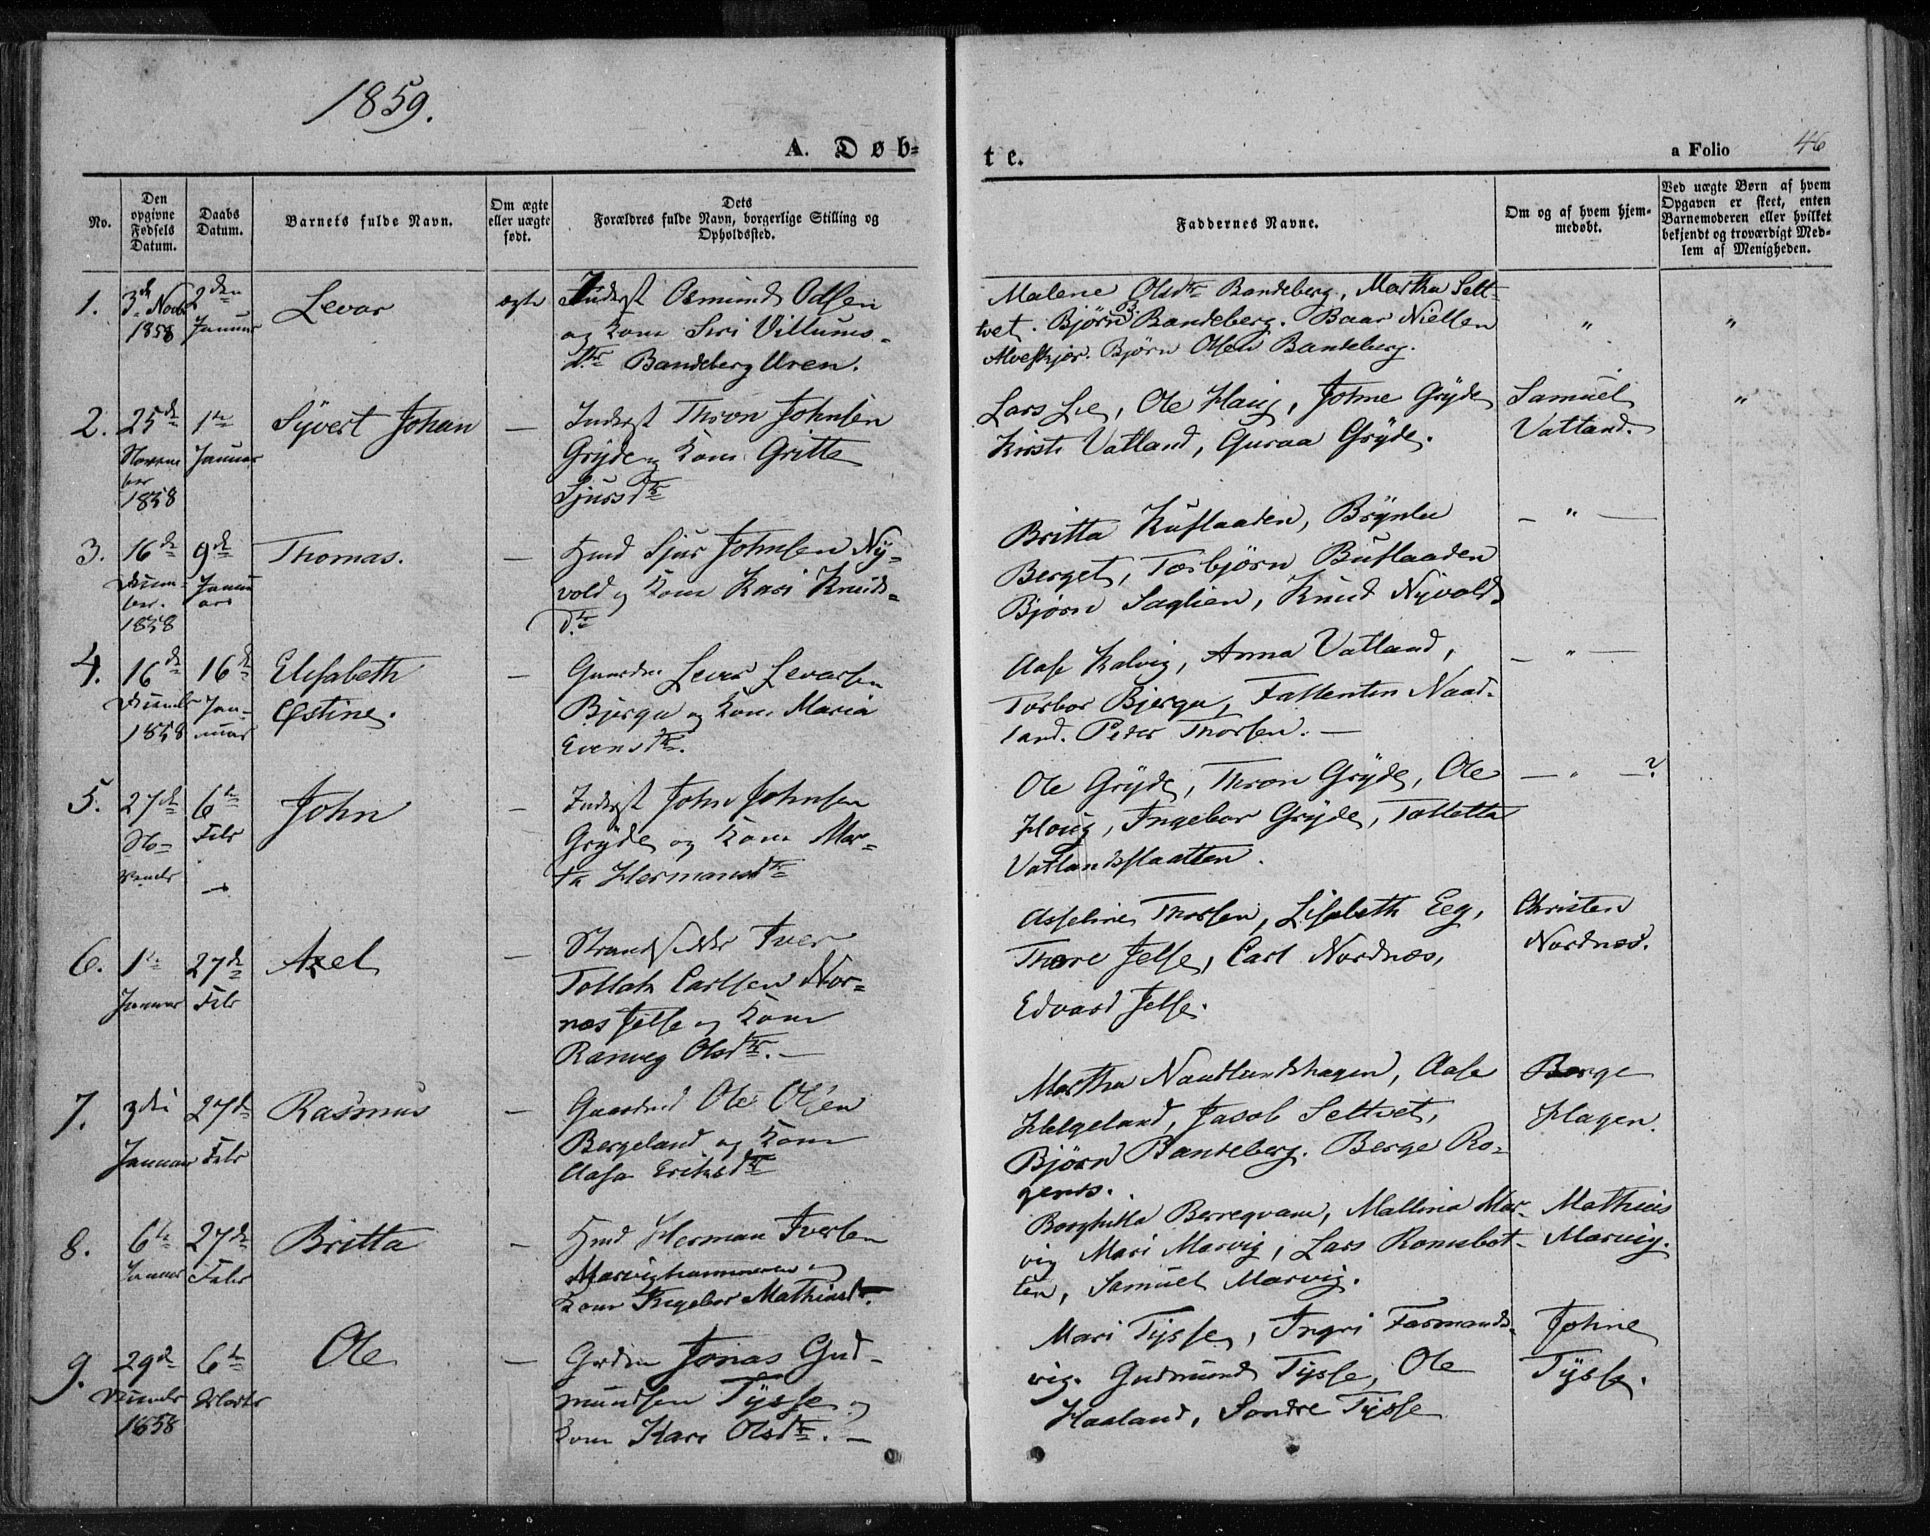 1859.
A. Døb-
te.
a Folio 46
No.
Den opgivne Fødsels Datum.
Daabs Datum.
Barnets fulde Navn.
Om ægte eller uægte født.
Dets Forældres fulde Navn, borgerlige Stilling og Opholdssted.
Faddernes Navne.
Om og af hvem hjem-
medøbt.
Ved uægte Børn af hvem
Opgaven er skeet, enten
Barnemoderen eller hvilket
bekjendt og troværdigt Med-
lem af Menigheden.
1. 3de Novbr 1858
2den Januar
Levar
ægte
Inderst Osmund Odsen
og Kone Siri Villums-
dtr Bandeberg Uren.
Malene Olsdtr Bandeberg, Martha Selt-
vet. Bjørn B. Bandeberg. Baar Nielsen
Alveskjær. Bjørn Olsen Bandeberg.
"
"
2. 25de Novem
ber
1858
1te Januar
Syvert Johan
—
Inderst Thron Johnsen
Gryde og Kone Gritte
Sjursdtr
Lars Lie, Ole Haug, Johne Gryde
Kirsti Vatland, Guraa Gryde.
Samuel
Vatland.
"
3. 16de Decem-
ber.
1858
9de Januar
Thomas.
—
Hmd Sjur Johnsen Ny-
vold og Kone Kari Knuds-
dtr
Britta Kuflaaden, Brynlu
Berget, Torbjørn Buflaaden
Bjørn Saglien, Knud Nyvold
— " —
4. 16de Decembr
1858
16de Jan-
uar
Elisabeth
Østine.
—
Gaardm Levar Levarsen
Bjerga og Kone Maria
Evensdtr.
Aase Kalvig, Anna Vatland,
Torbor Bjerga, Fallentin Naad-
land. Peder Thorsen. —
— " —
5. 27de No-
vembr
6te Febr
John
—
Inderst John Johnsen
Gryde og Kone Mar-
ta Hermansdtr
Ole Gryde, Thron Gryde, Ole
Houg, Ingebor Gryde, Tolletta
Vatlandsflaatten.
— " — ?
6. 1te
Januar
27de
Febr
Axel
—
Strandsidder Iver
Tollak Carlsen Nor-
næs Jelse og Kone
Ranveg Olsdtr. —
Asseline Thorsen, Lisabeth Eeg,
Thore Jelse, Carl Nordnæs,
Edvard Jelse.
Christen
Nordnæs.
7. 3die
Januar
27de
Febr
Rasmus
—
Gaardmd Ole Olsen
Bergeland og Kone
Aasa Eriksdtr
Martha Naadlandshagen, Aase
Helgeland, Jacob Seltvet,
Bjørn Bandeberg. Berge Ro-
gends.
Børge
Hagen.
8. 6te
Januar
27de
Febr
Britta
—
Hmd Herman Iversen
Marvighammeren og
Kone Ingebor Mathiasdtr.
Borghilla Berreqvam, Mallina Mar-
vig Mari Marvig, Lars Ramsbot-
ten, Samuel Marvig.
Mathias
Marvig.
9. 29de
Decembr
1858
6te
Marts
Ole
—
Grdm Jonas Gud-
mundsen Tysse og
Kone Kari Olsdtr. —
Mari Tysse, Ingri Formands-
vig. Gudmund Tysse, Ole
Haaland, Sondre Tysse
Johne
Tysse.